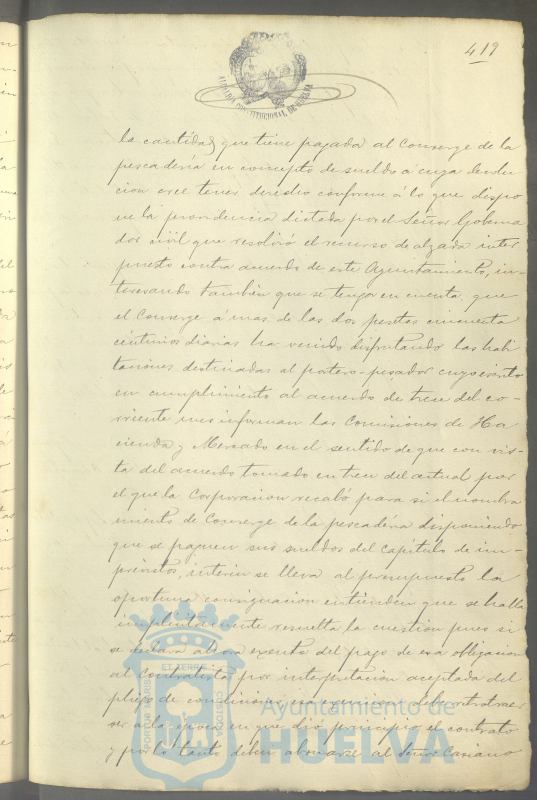 419
ALCALDIA CONSTITUCIONAL DE HUELVA
la cantidad que tiene pagada al Conserge de la
pescadería en concepto de sueldo á cuya devolu
cion cree tener derecho conforme á lo que dispo
ne la providencia dictada por el Señor Goberna
dor civil que resolvió el recurso de alzada inter
puesto contra acuerdo de este Ayuntamiento, in-
teresando tambien que se tenga en cuenta que
el Conserge á mas de las dos pesetas cincuenta
céntimos diarias ha venido disfrutando las habi
taciones destinadas al portero-pesador cuyo escrito
en cumplimiento al acuerdo de trece del co-
rriente mes informan las Comisiones de Ha
cienda y Mercado en el sentido de que con vis-
ta del acuerdo tomado en trece del actual por
el que la Corporacion recabó para si el nombra
miento de Conserge de la pescadería disponiendo
que se paguen sus sueldos del capítulo de im-
previstos, interin se lleva al presupuesto la
oportuna consignacion entienden que se halla
implicitamente resuelta la cuestion pues si
se declara ahora exento del pago de esa obligacion
al Contratista por interpretacion aceptada del
pliego de condiciones
á la época en que dió principio el contrato
y por lo tanto deben abonarse al Señor Casiano
Ayuntamiento de
HUELVA